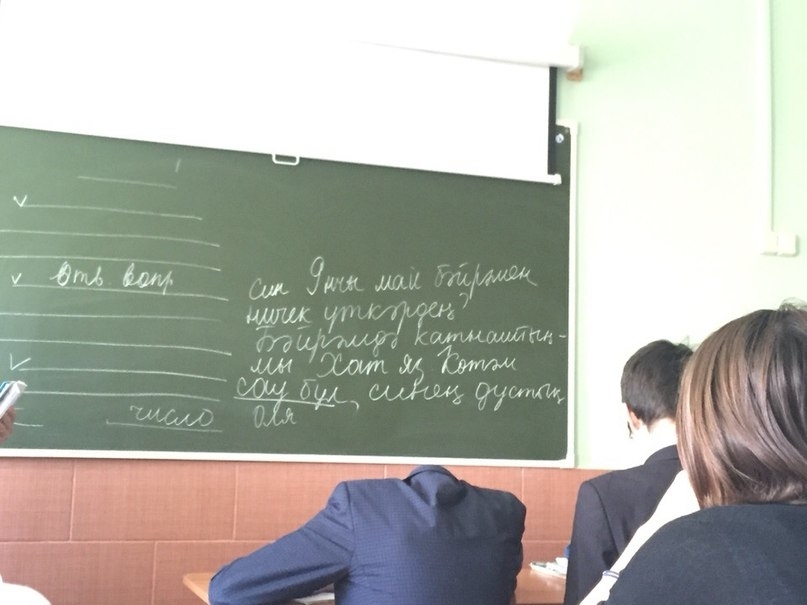 Отв вопр
син 9нчы май бәйрәмен
ничек үткәрдең?
Бәйрәмдә катнаштың-
мы Хат яз Көтәм
сау бул, синең дустың
Оля
число